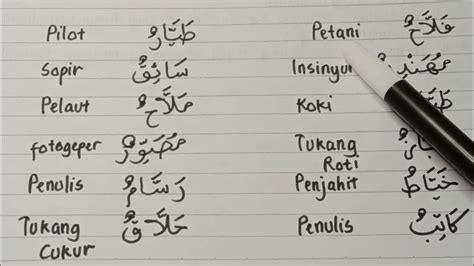 Pilot طَيَّارٌ
Sopir سَائِقٌ
Pelaut مَلَّاحٌ
fotogeper مُصَوِّرٌ
Penulis رَسَّامٌ
Tukang حَلَّاقٌ
Cukur
Petani فَلَّاحٌ
Insinyur
Koki
Tukang
Roti
Penjahit خَيَّاطٌ
Penulis كَاتِبٌ